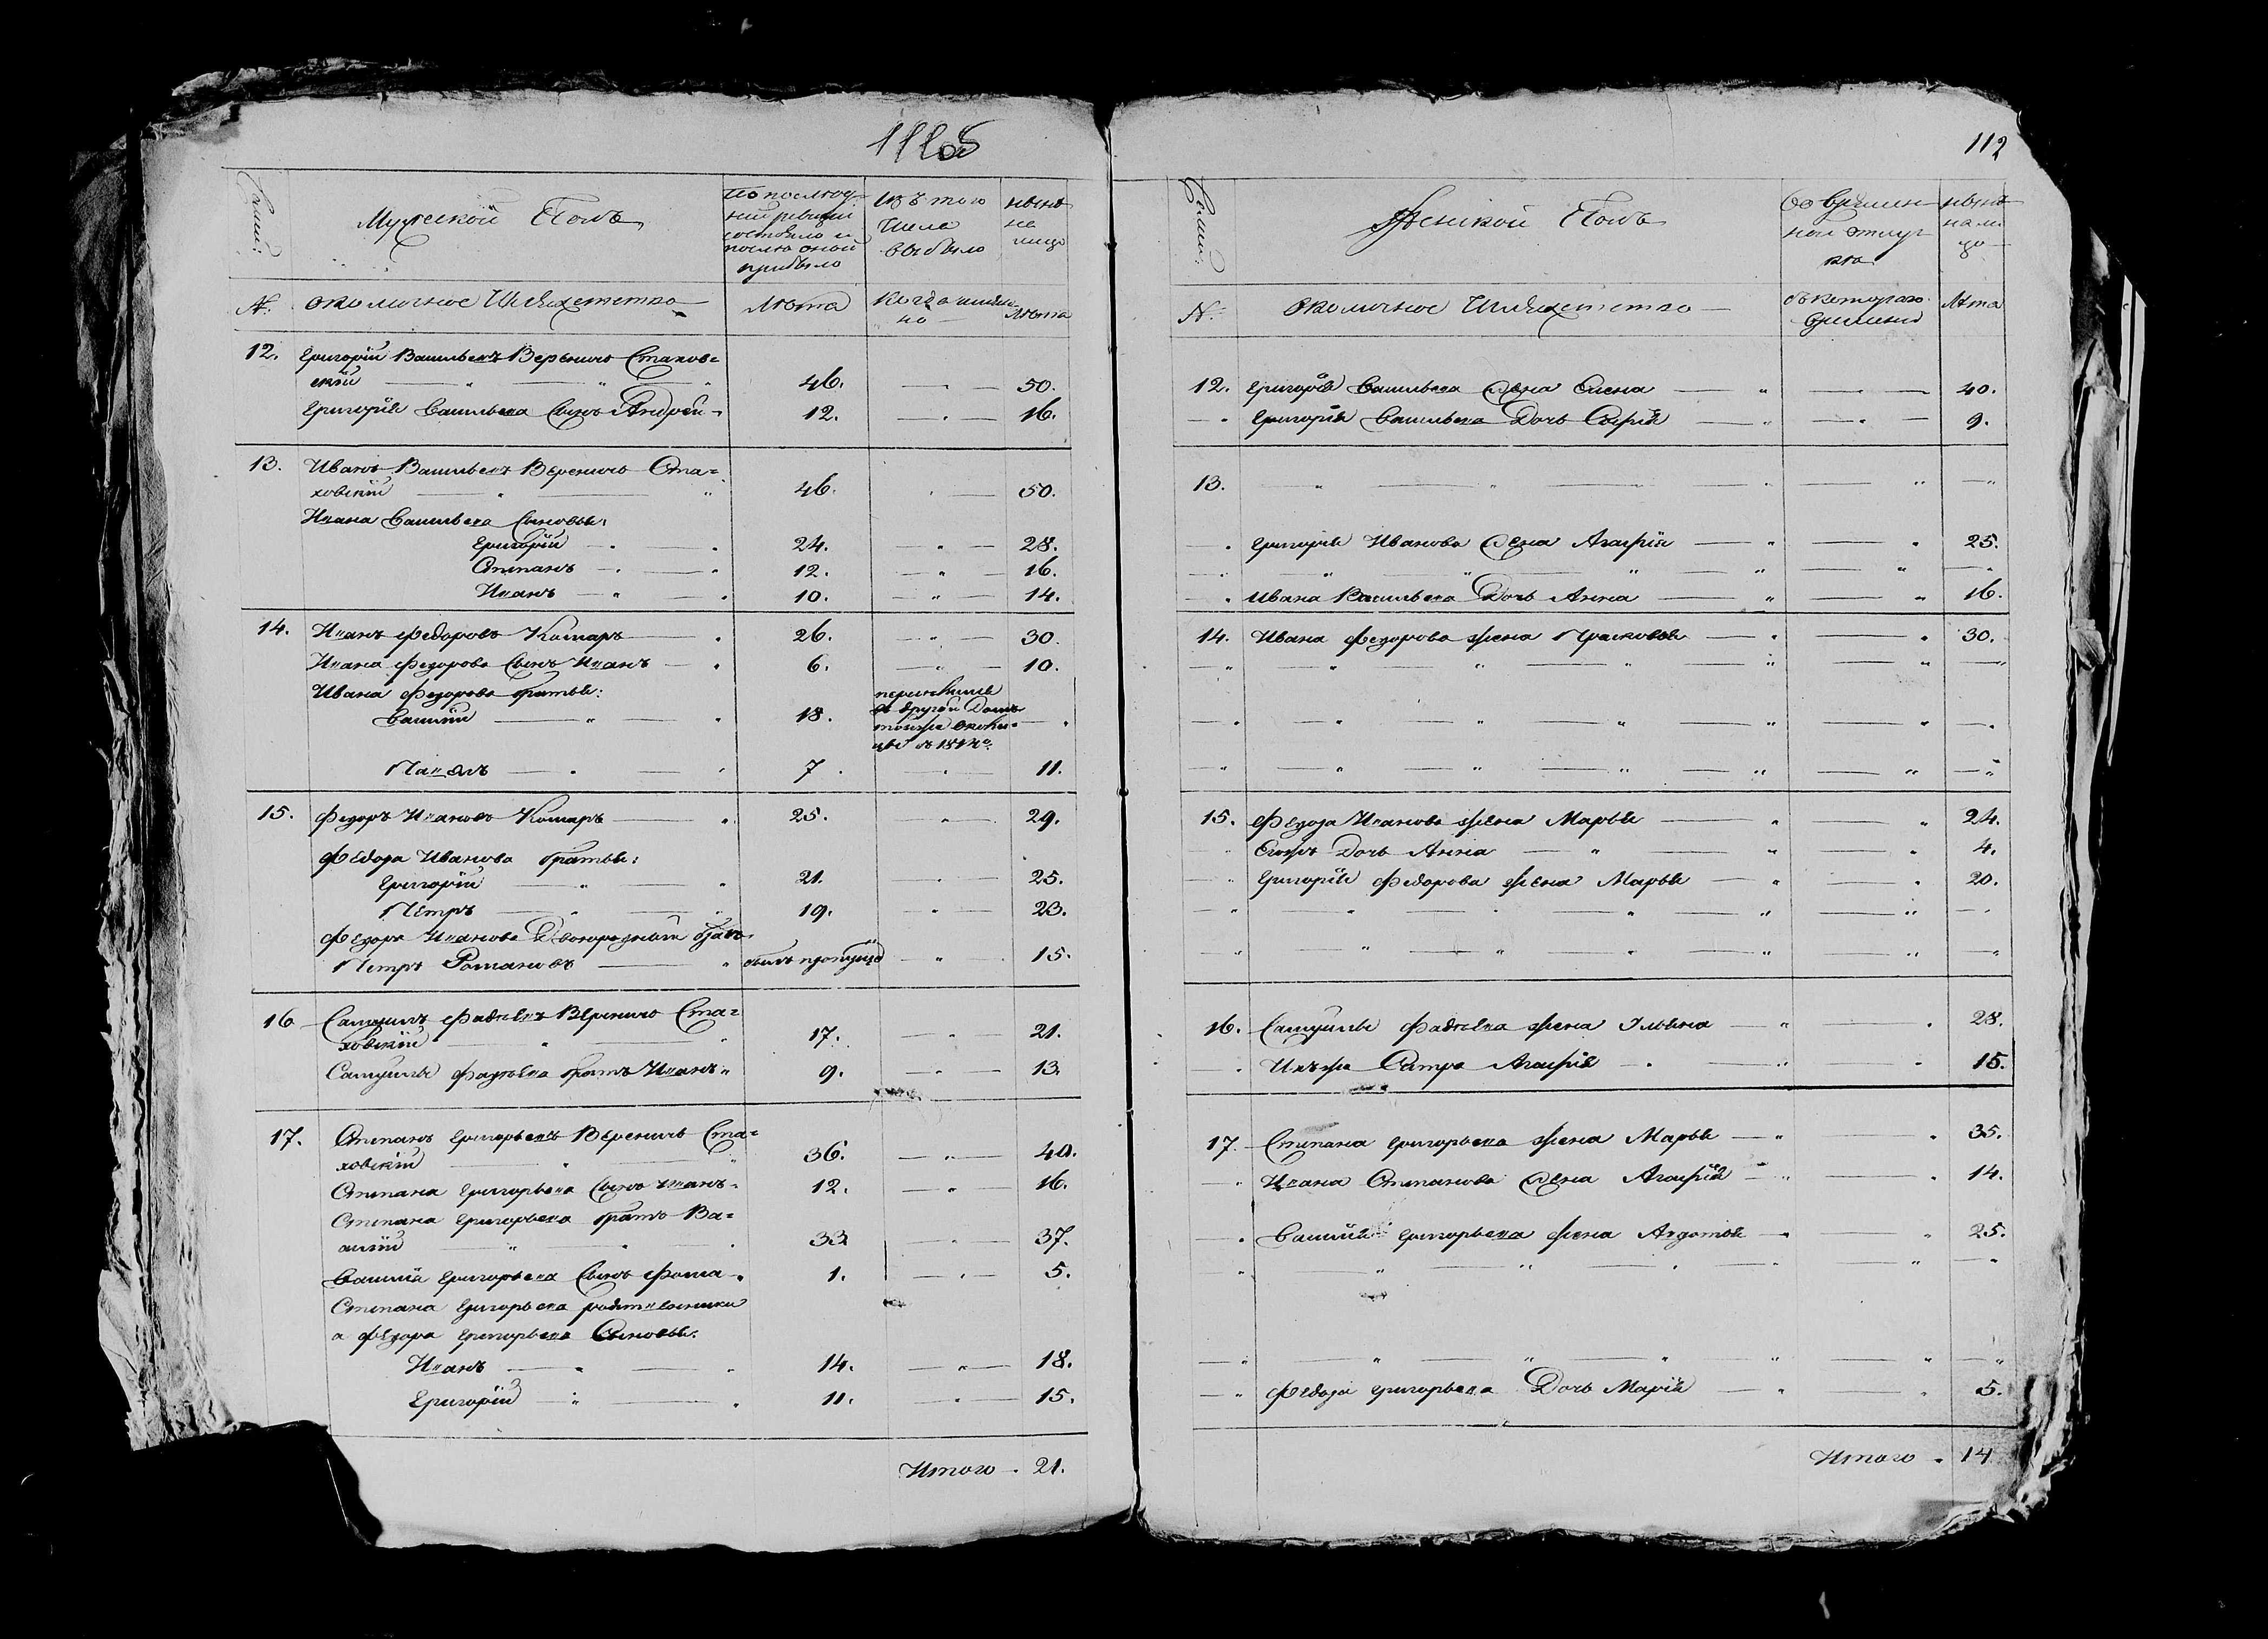 112
Семьи:
Мужеской Полъ
По послѣд-
ней ревизіи
состояло и
послѣ оной
прибыло
Изъ того
числа
выбыло
нынѣ
на
лицо
№.
околичное Шляхетство
Лѣта
Когда имян-
но
Лѣта
12. Григорій Васильевъ Вереничъ Стахов=
скій 46. 50.
Григорія Васильева Сынъ Андрей 12. 16.
13. Иванъ Васильевъ Вереничъ Ста=
ховскій 46. 50.
Ивана Васильева Сыновья:
Григорій 24. 28.
Степанъ 12. 16.
Иванъ 10. 14.
14. Иванъ Федоровъ Комаръ 26. 30.
Ивана Федорова Сынъ Иванъ 6. 10.
Ивана Федорова братья:
Василій 18.
въ другой Домъ
тойже околи-
цы въ
Павелъ 7. 11.
15. Федоръ Ивановъ Комаръ 25. 29.
Федора Иванова братья:
Григорій 21. 25.
Петръ 19. 23.
Федора Иванова Двоюродный братъ
Петръ Романовъ былъ пропущ 15.
16. Самуилъ Фадѣевъ Вереничъ Ста=
ховскій 17. 21.
Самуила Фадѣева братъ Иванъ 9. 13.
17. Степанъ Григорьевъ Вереничъ Ста=
ховскій 36. 40.
Степана Григорьева Сынъ Иванъ 12. 16.
Степана Григорьева братъ Ва=
силій 33 37.
Василія Григорьева Сынъ Фома 1. 5.
Степана Григорьева родственники
а Федора Григорьева Сыновья:
Иванъ 14. 18.
Григорій 11. 15.
Итого 21.
112
Семьи:
Женской Полъ
Во времен-
ной отлуч
кѣ
нынѣ
на ли
цо
№.
околичное Шляхетство
съ котораго
времени
Лѣта
12. Григорія Васильева Жена Елена 40.
Григорія Васильева Дочь Софія 9.
13.
Григорія Иванова Жена Агафія 25.
Ивана Васильева Дочь Анна 16.
14. Ивана Федорова жена Прасковья 30.
15. Федора Иванова жена Марья 24.
Егожъ Дочь Анна 4.
Григорія Федорова жена Марья 20.
16. Самуила Фадѣева жена Ульяна 28.
Ихъже Сестра Агафія 15.
17. Степана Григорьева жена Марья 35.
Ивана Степанова Жена Агафія 14.
Василія Григорьева жена Авдотья 25.
Федора Григорьева Дочь Марія 5.
Итого 14